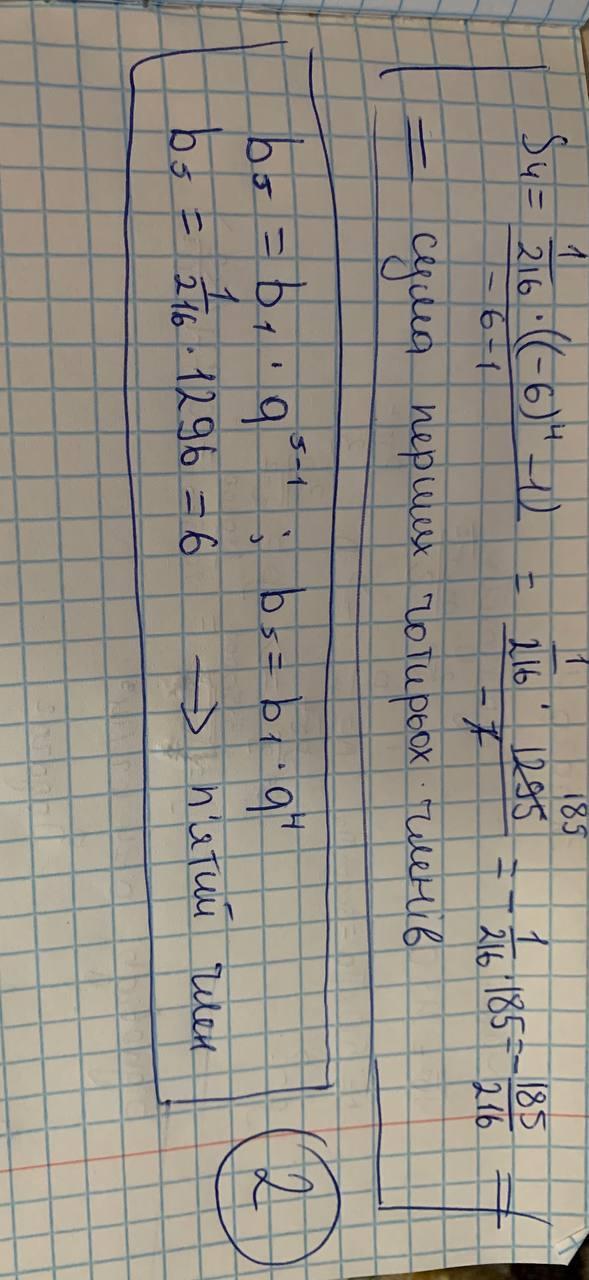 S4 = \frac{\frac{1}{216} \cdot ((-6)^4 - 1)}{-6-1} = \frac{\frac{1}{216} \cdot \overset{185}{1295}}{-7} = -\frac{1}{216} \cdot 185 = -\frac{185}{216} =
= сума перших чотирьох членів
b5 = b1 · q^{5-1} ; b5 = b1 · q^4
b5 = \frac{1}{216} · 1296 = 6 → п'ятий член
2